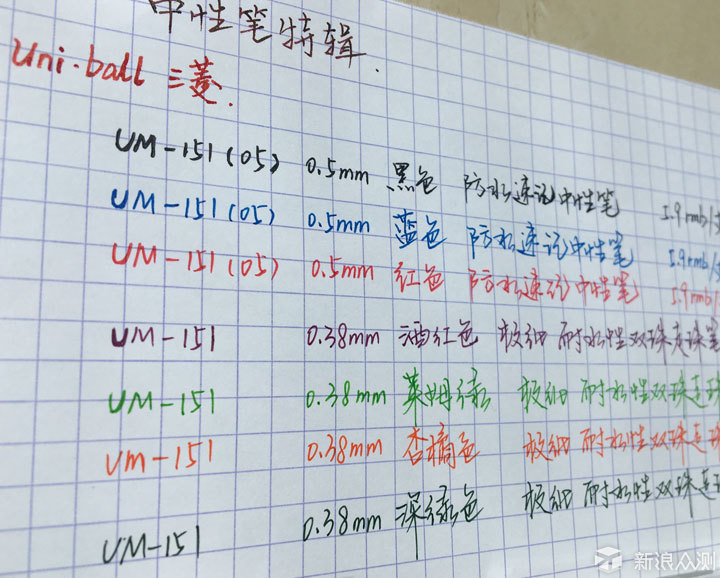 中性笔特辑.
Uni·ball 三菱.
UM-151(05) 0.5mm 黑色 防水速记中性笔 1.9rmb/支
UM-151(05) 0.5mm 蓝色 防水速记中性笔 1.9rmb/
UM-151(05) 0.5mm 红色 防水速记中性笔 1.9rmb/
UM-151 0.38mm 酒红色 极细耐水性双珠走珠笔
UM-151 0.38mm 莱姆绿 极细耐水性双珠走珠
UM-151 0.38mm 杏橘色 极细耐水性双珠走
UM-151 0.38mm 深绿色 极细耐水性双珠走
新浪众测